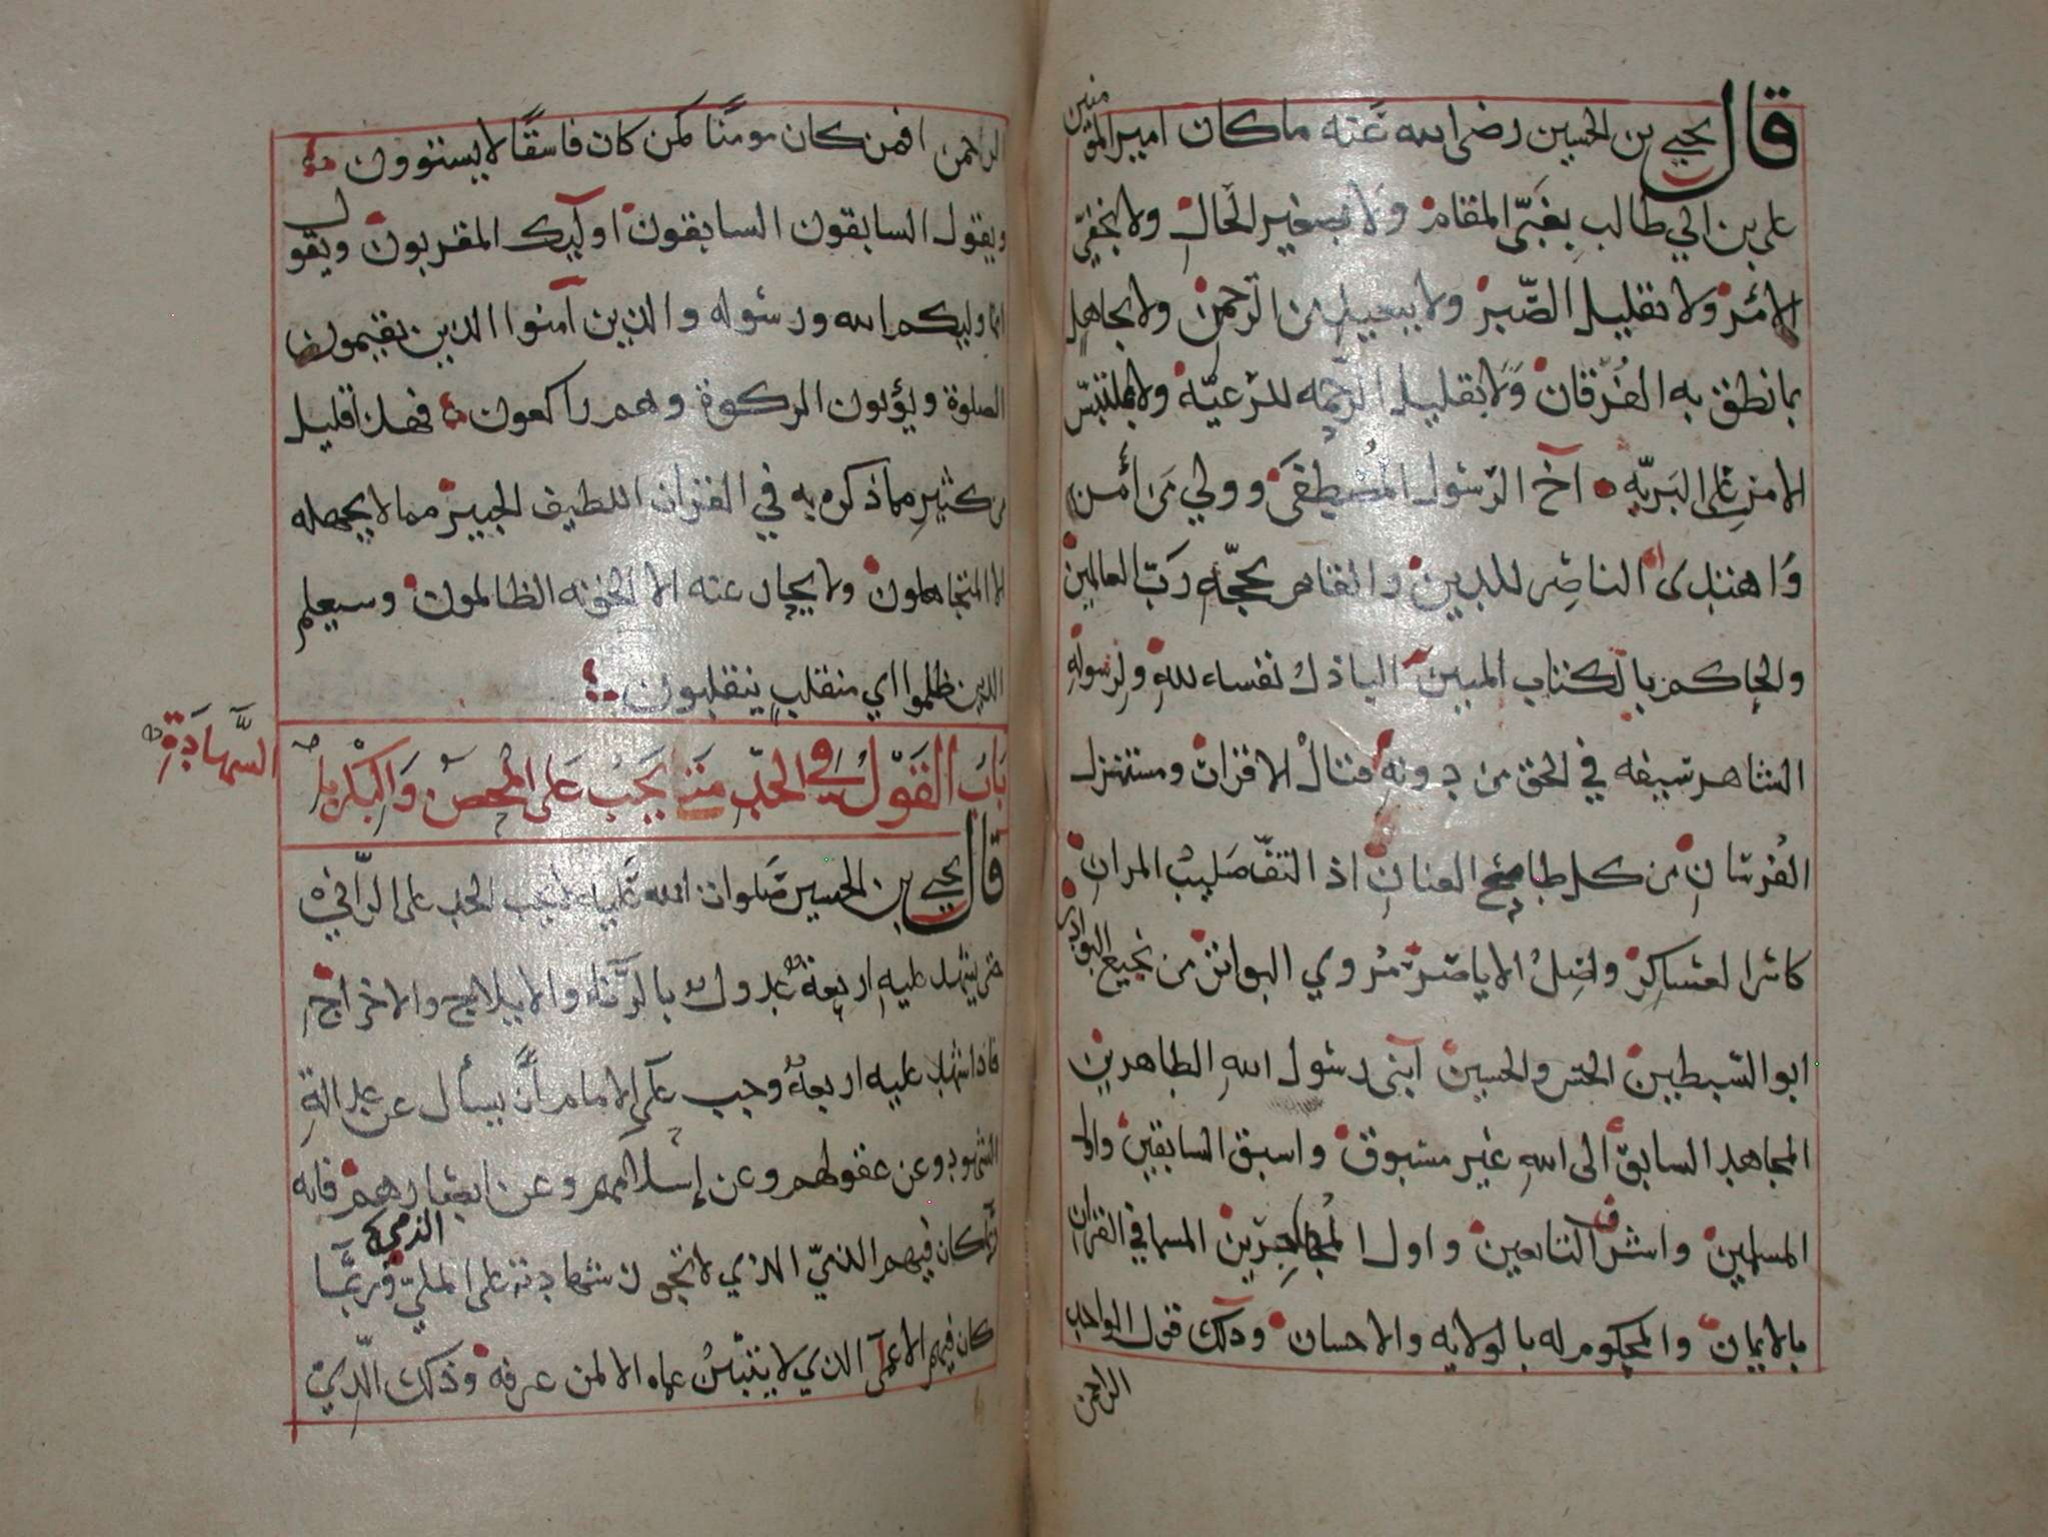 قال يحيى بن الحسين رضى الله عنه ما كان امير المؤمنين
على بن ابي طالب بغبىّ المقام ولا بصغير الحال ولا بخفىّ
الامر ولا بقليل الصّبر ولا ببعيد من الرحمن ولا بجاهل
بما نطق به الفرقان ولا بقليل الرحمه للرعيّة ولا بملتبس
الامر على البريّه آخ الرسول المصطفى وولي من أمن
واهتدى الناصر للدين والقاهر بحجّة ربّ العالمين
والحاكم بالكتاب المبين الباذل نفسه لله ولرسوله
الشاهر سيفه في الحق من دونه قتال الاقران ومستنزل
الفرسان من كل طامح العنان اذ التفّ صليب المران
كاسر العساكر وافضل الاياصر مروي البواتر من نجيع البوادر
ابو السّبطين الحسن والحسين آبنى رسول الله الطاهرين
المجاهد السابق الى الله غير مسبوق واسبق السابقين واول
المسلمين واشرف التابعين واول المهاجرين المسما في القران
بالايمان والمحكوم له بالولايه والاحسان وذلك قول الواحد
الراحمن
الراحمن افمن كان مومنًا كمن كان فاسقًا لا يستوون
ويقول السابقون السابقون اوليك المقربون ويقول
انما وليكم الله ورسوله والذين آمنوا الذين يقيمون
الصلوة ويؤتون الزكوة وهم راكعون فهذا قليل
من كثير مما ذكره به في القران اللطيف الخبير مما لا يجهله
الا المتجاهلون ولا يحيد عنه الا الخونه الظالمون وسيعلم
الذين ظلموا اي منقلب ينقلبون
باب القول في الحد متى يجب على المحصن والبكر بالشهادة
قال يحيى بن الحسين صلوات الله عليه لا يجب الحد على الزاني
حتى يشهد عليه اربعة عدول بالزناء والايلاج والاخراج
فاذا شهد عليه اربعة وجب على الامام أن يسأل عن عدالة
الشهود وعن عقولهم وعن إسلامهم وعن ابصارهم فانه
ربما كان فيهم الذميّ الذي لا تجوز شهادته على الملي الذمي وربما
كان فيهم الاعمى الذي لا يتبين عماه الا لمن عرفه وذلك الذي